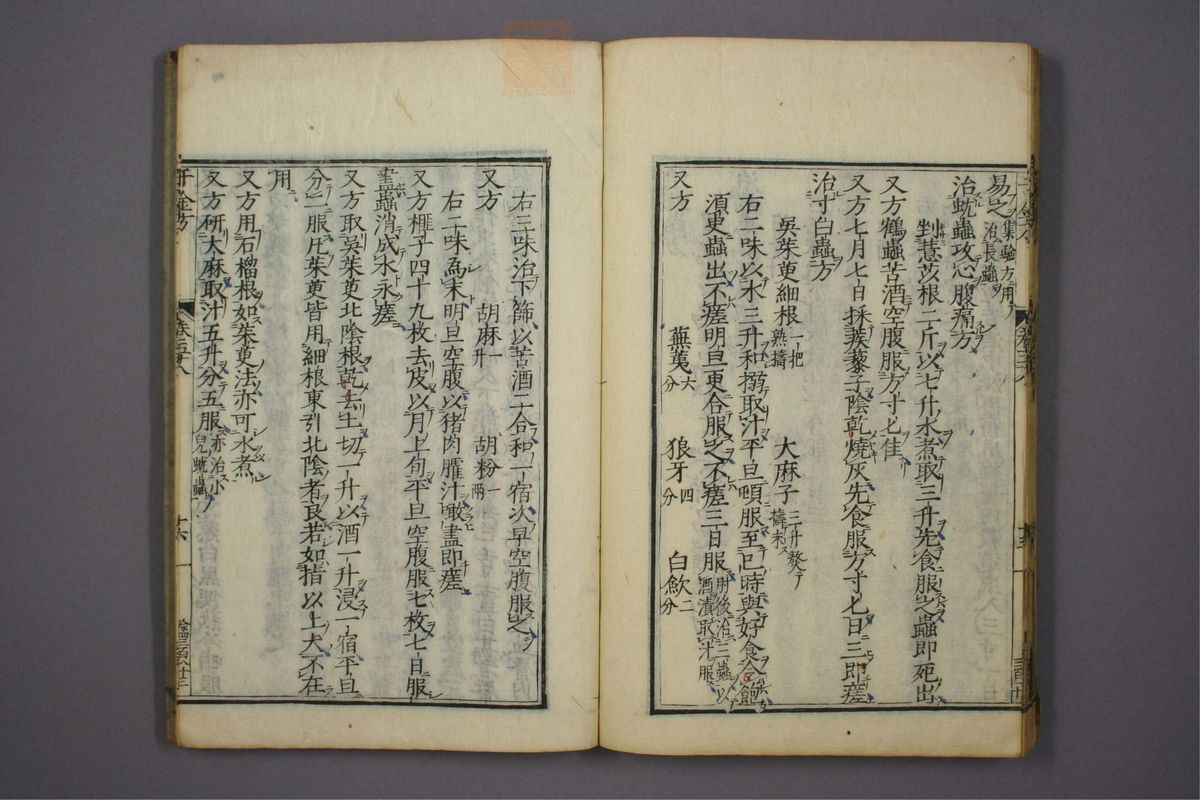 易之集驗方用治長蟲
治蚘蟲攻心腹痛方
剉薏苡根二斤以七升水煮取三升先食服之蟲即死出
又方鶴蟲苦酒空腹服方寸匕佳
又方七月七日採蒺藜子陰乾燒灰先食服方寸匕日三即瘥
治寸白蟲方
吳茱萸細根一把熟擣 大麻子三升熬擣末
右二味以水三升和搦取汁平旦頓服至巳時與好食令飽
須更蟲出不瘥明旦更合服之不瘥三日服肘後治三蟲以酒漬取汁服
又方 蕪荑六分 狼牙四分 白歛二分
右三味治下篩以苦酒二合和一宿次早空腹服之
又方 胡麻一升 胡粉一兩
右二味為末明旦空腹以猪肉臛汁噉盡即瘥
又方榧子四十九枚去皮以月上旬平旦空腹服七枚七日服
盡蟲消成水永瘥
又方取吳茱萸北陰根乾去土切一升以酒一升浸一宿平旦
分二服凡茱萸皆用細根東引北陰者良若如指以上大不在
用
又方用石榴根如茱萸法亦可水煮
又方研大麻取汁五升分五服亦治小兒蚘蟲
千金方 十六